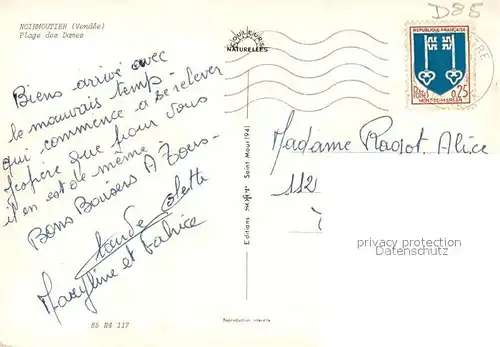 NOIRMOUTIER (Vendée)
Plage des Dames
COULEURS
NATURELLES
D85
RÉPUBLIQUE FRANÇAISE
Postes 0,25
MONT-DE-MARSAN
Biens arrivé avec
le mauvais temps -
qui commence a se relever
J'espère que pour vous
il en est de même.
Bons Baisers A Tous -
Claude Colette
Maryline et Fabrice
Madame Ragot. Alice
112
Saint Maur (94)
Editions
privacy protection
Datenschutz
85 N4 117
Reproduction interdite